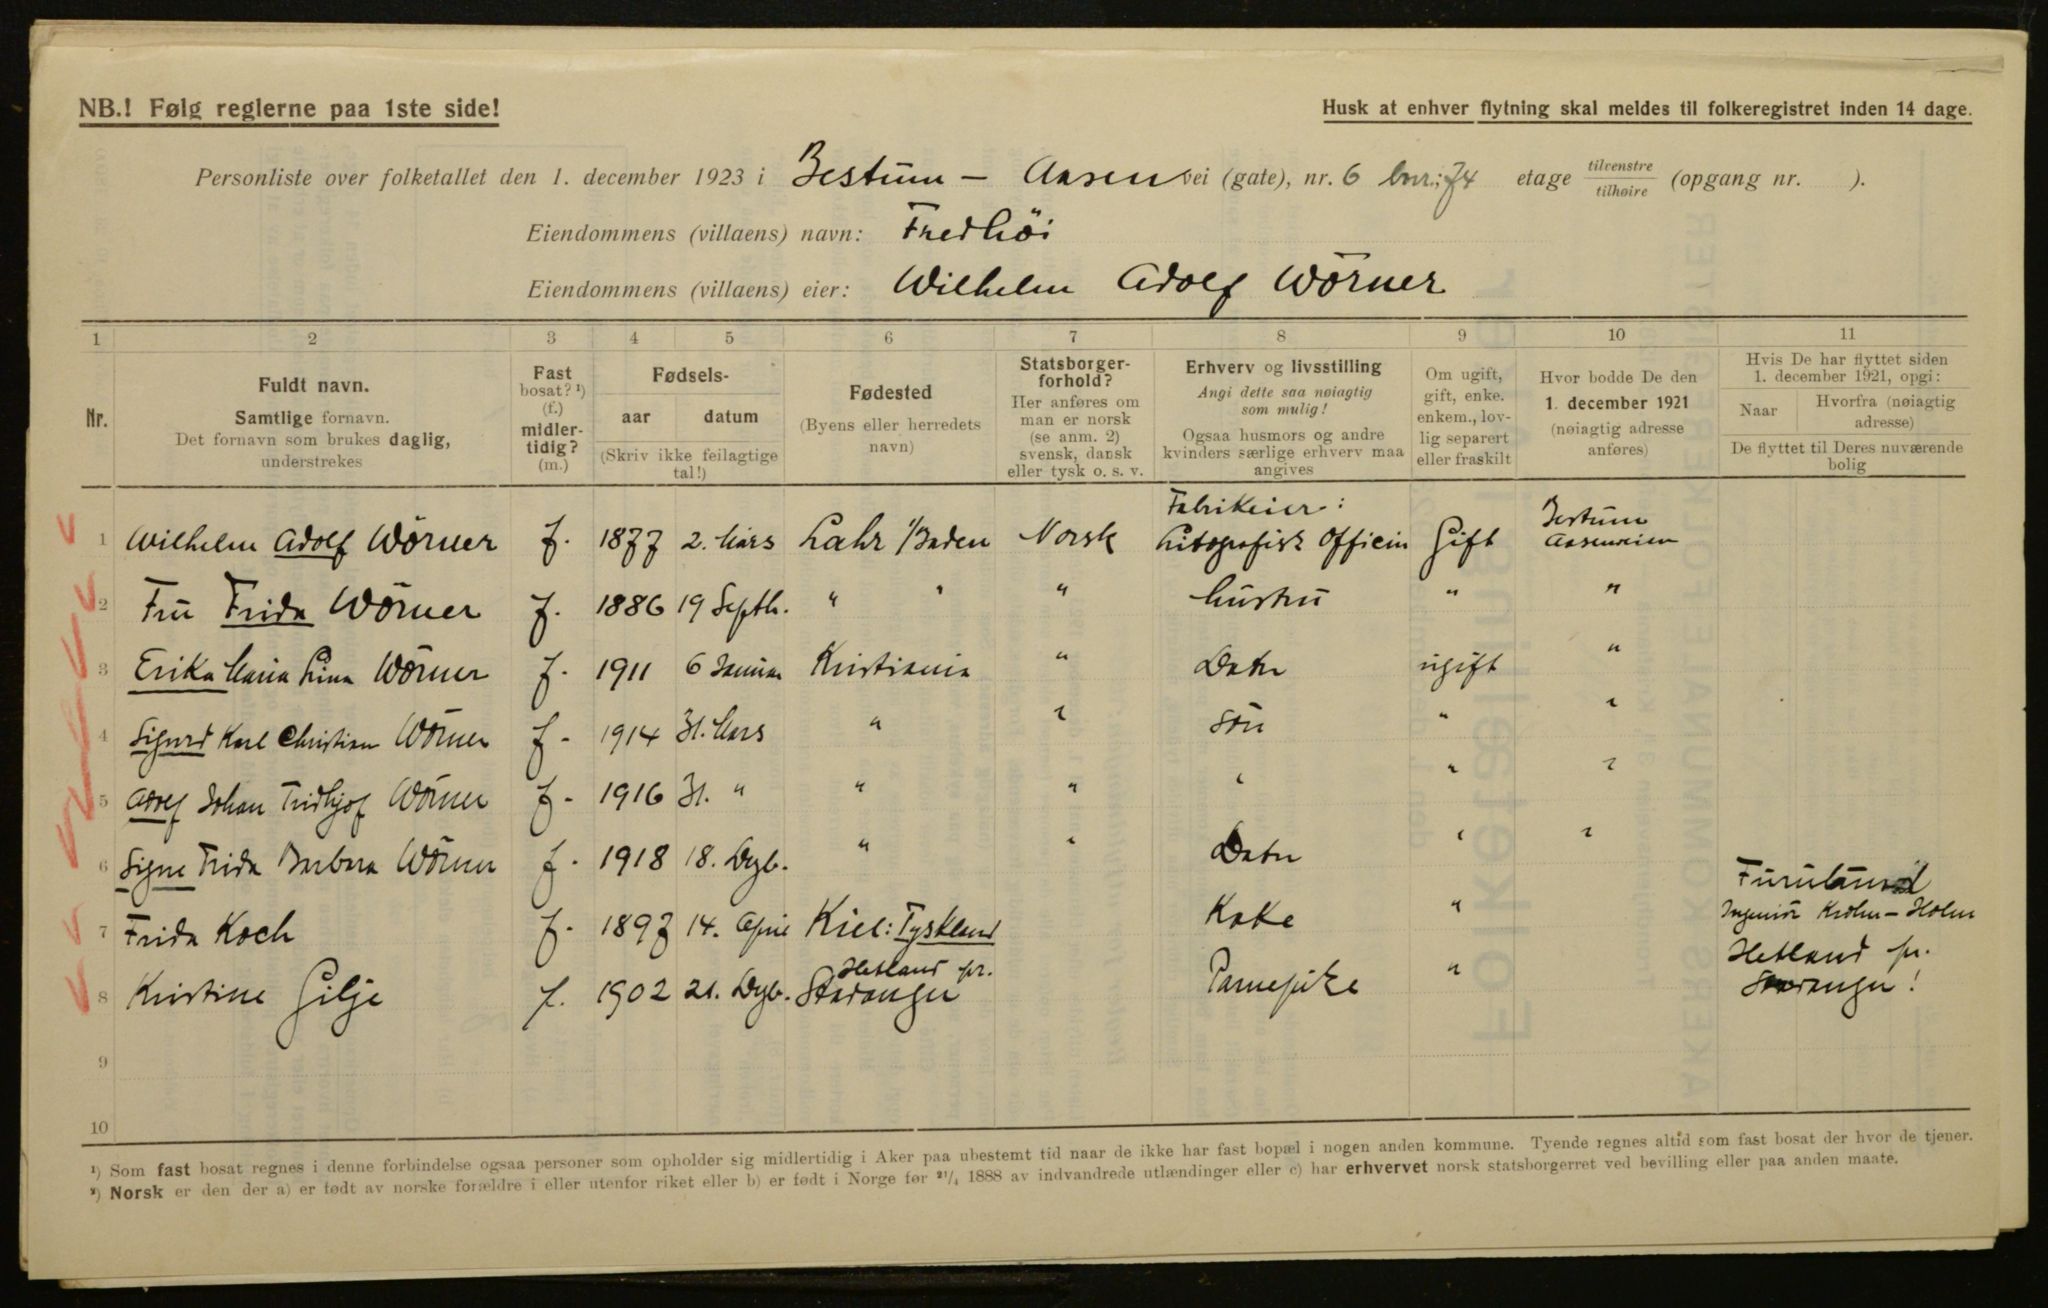 NB.! Følg reglerne paa 1ste side!
Husk at enhver flytning skal meldes til folkeregistret inden 14 dage.
Personliste over folketallet den 1. december 1923 i Bestum - Aasen vei (gate), nr. 6 bnr.; 74 etage tilvenstre tilhøire (opgang nr. ).
Eiendommens (villaens) navn: Fredhöi
Eiendommens (villaens) eier: Wilhelm Adolf Wörner
1 2 3 4 5 6 7 8 9 10 11
Nr.
Fuldt navn.
Samtlige fornavn.
Det fornavn som brukes daglig,
understrekes
Fast
bosat? ¹)
(f.)
midler-
tidig?
(m.)
Fødsels-
aar datum
(Skriv ikke feilagtige
tal!)
Fødested
(Byens eller herredets
navn)
Statsborger-
forhold?
Her anføres om
man er norsk
(se anm. 2)
svensk, dansk
eller tysk o. s. v.
Erhverv og livsstilling
Angi dette saa nøiagtig
som mulig!
Ogsaa husmors og andre
kvinders særlige erhverv maa
angives
Om ugift,
gift, enke.
enkem., lov-
lig separert
eller fraskilt
Hvor bodde De den
1. december 1921
(nøiagtig adresse
anføres)
Hvis De har flyttet siden
1. december 1921, opgi:
Naar
Hvorfra (nøiagtig
adresse)
De flyttet til Deres nuværende
bolig
1 Wilhelm Adolf Wörner f. 1877 2. Mars Lahr i/Baden Norsk Fabrikeier: Litografisk Officin Gift Bestum Aasenveien
2 Fru Frida Wörner f. 1886 19 Septb. " " " hustru " "
3 Erika Maria Lina Wörner f. 1911 6 Januar Kristiania " Datr ugift "
4 Sigurd Karl Christian Wörner f. 1914 31. Mars " " Sön " "
5 Adolf Johan Fridhjof Wörner f. 1916 31. " " " " " "
6 Signe Frida Barbara Wörner f. 1918 18. Dezb. " " Datr " "
7 Frida Koch f. 1897 14. April Kiel: Tyskland Koke " Furulund Ingeniör Krohn-Holm
8 Kristine Gilje f. 1902 21. Dezb. Hetland pr. Stavanger " Hetland pr. Stavanger!
9
10
¹) Som fast bosat regnes i denne forbindelse ogsaa personer som opholder sig midlertidig i Aker paa ubestemt tid naar de ikke har fast bopæl i nogen anden kommune. Tyende regnes altid som fast bosat der hvor de tjener.
²) Norsk er den der a) er født av norske forældre i eller utenfor riket eller b) er født i Norge før ²¹/₄ 1888 av indvandrede utlændinger eller c) har erhvervet norsk statsborgerret ved bevilling eller paa anden maate.